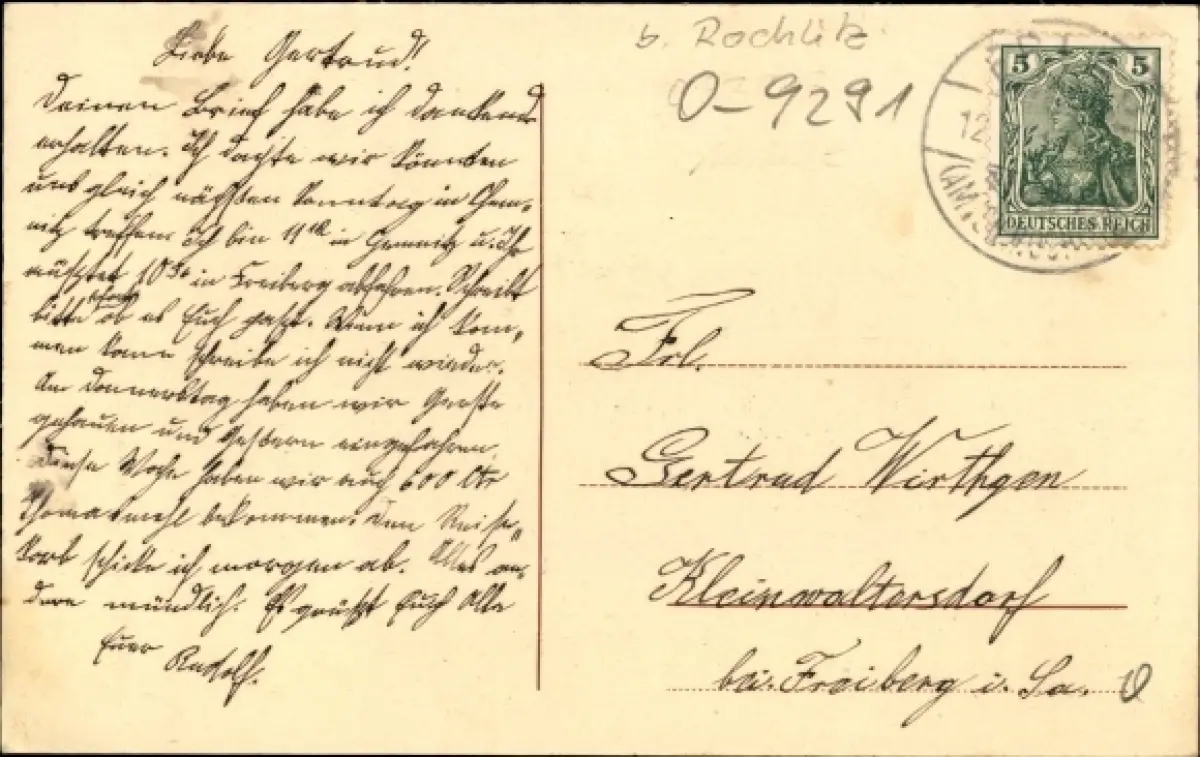 Liebe Gertrud!
Deinen Brief habe ich dankend
erhalten. Ich dachte wir könnten
uns gleich nächsten Sonntag in Chem-
nitz treffen. Ich bin 11 in Chemnitz u. Ihr
müsstet 10³⁰ in Freiberg abfahren. Schreibt
bitte sofort ob es Euch passt. Wenn ich kom-
men kann schreibe ich nicht wieder.
Am Donnerstag haben wir Gerste
gehauen und Gestern eingefahren.
Diese Woche haben wir auch 600 Ctr
Thomasmehl bekommen. Den Reise-
korb schicke ich morgen ab. Alles an-
dere mündlich. Es grüsst Euch Alle
Euer
Rudolf.
b. Rochlitz
O-9291
5 5
DEUTSCHES REICH
12
Frl.
Gertrud Wirthgen
Kleinwaltersdorf
bei Freiberg i. Sa.